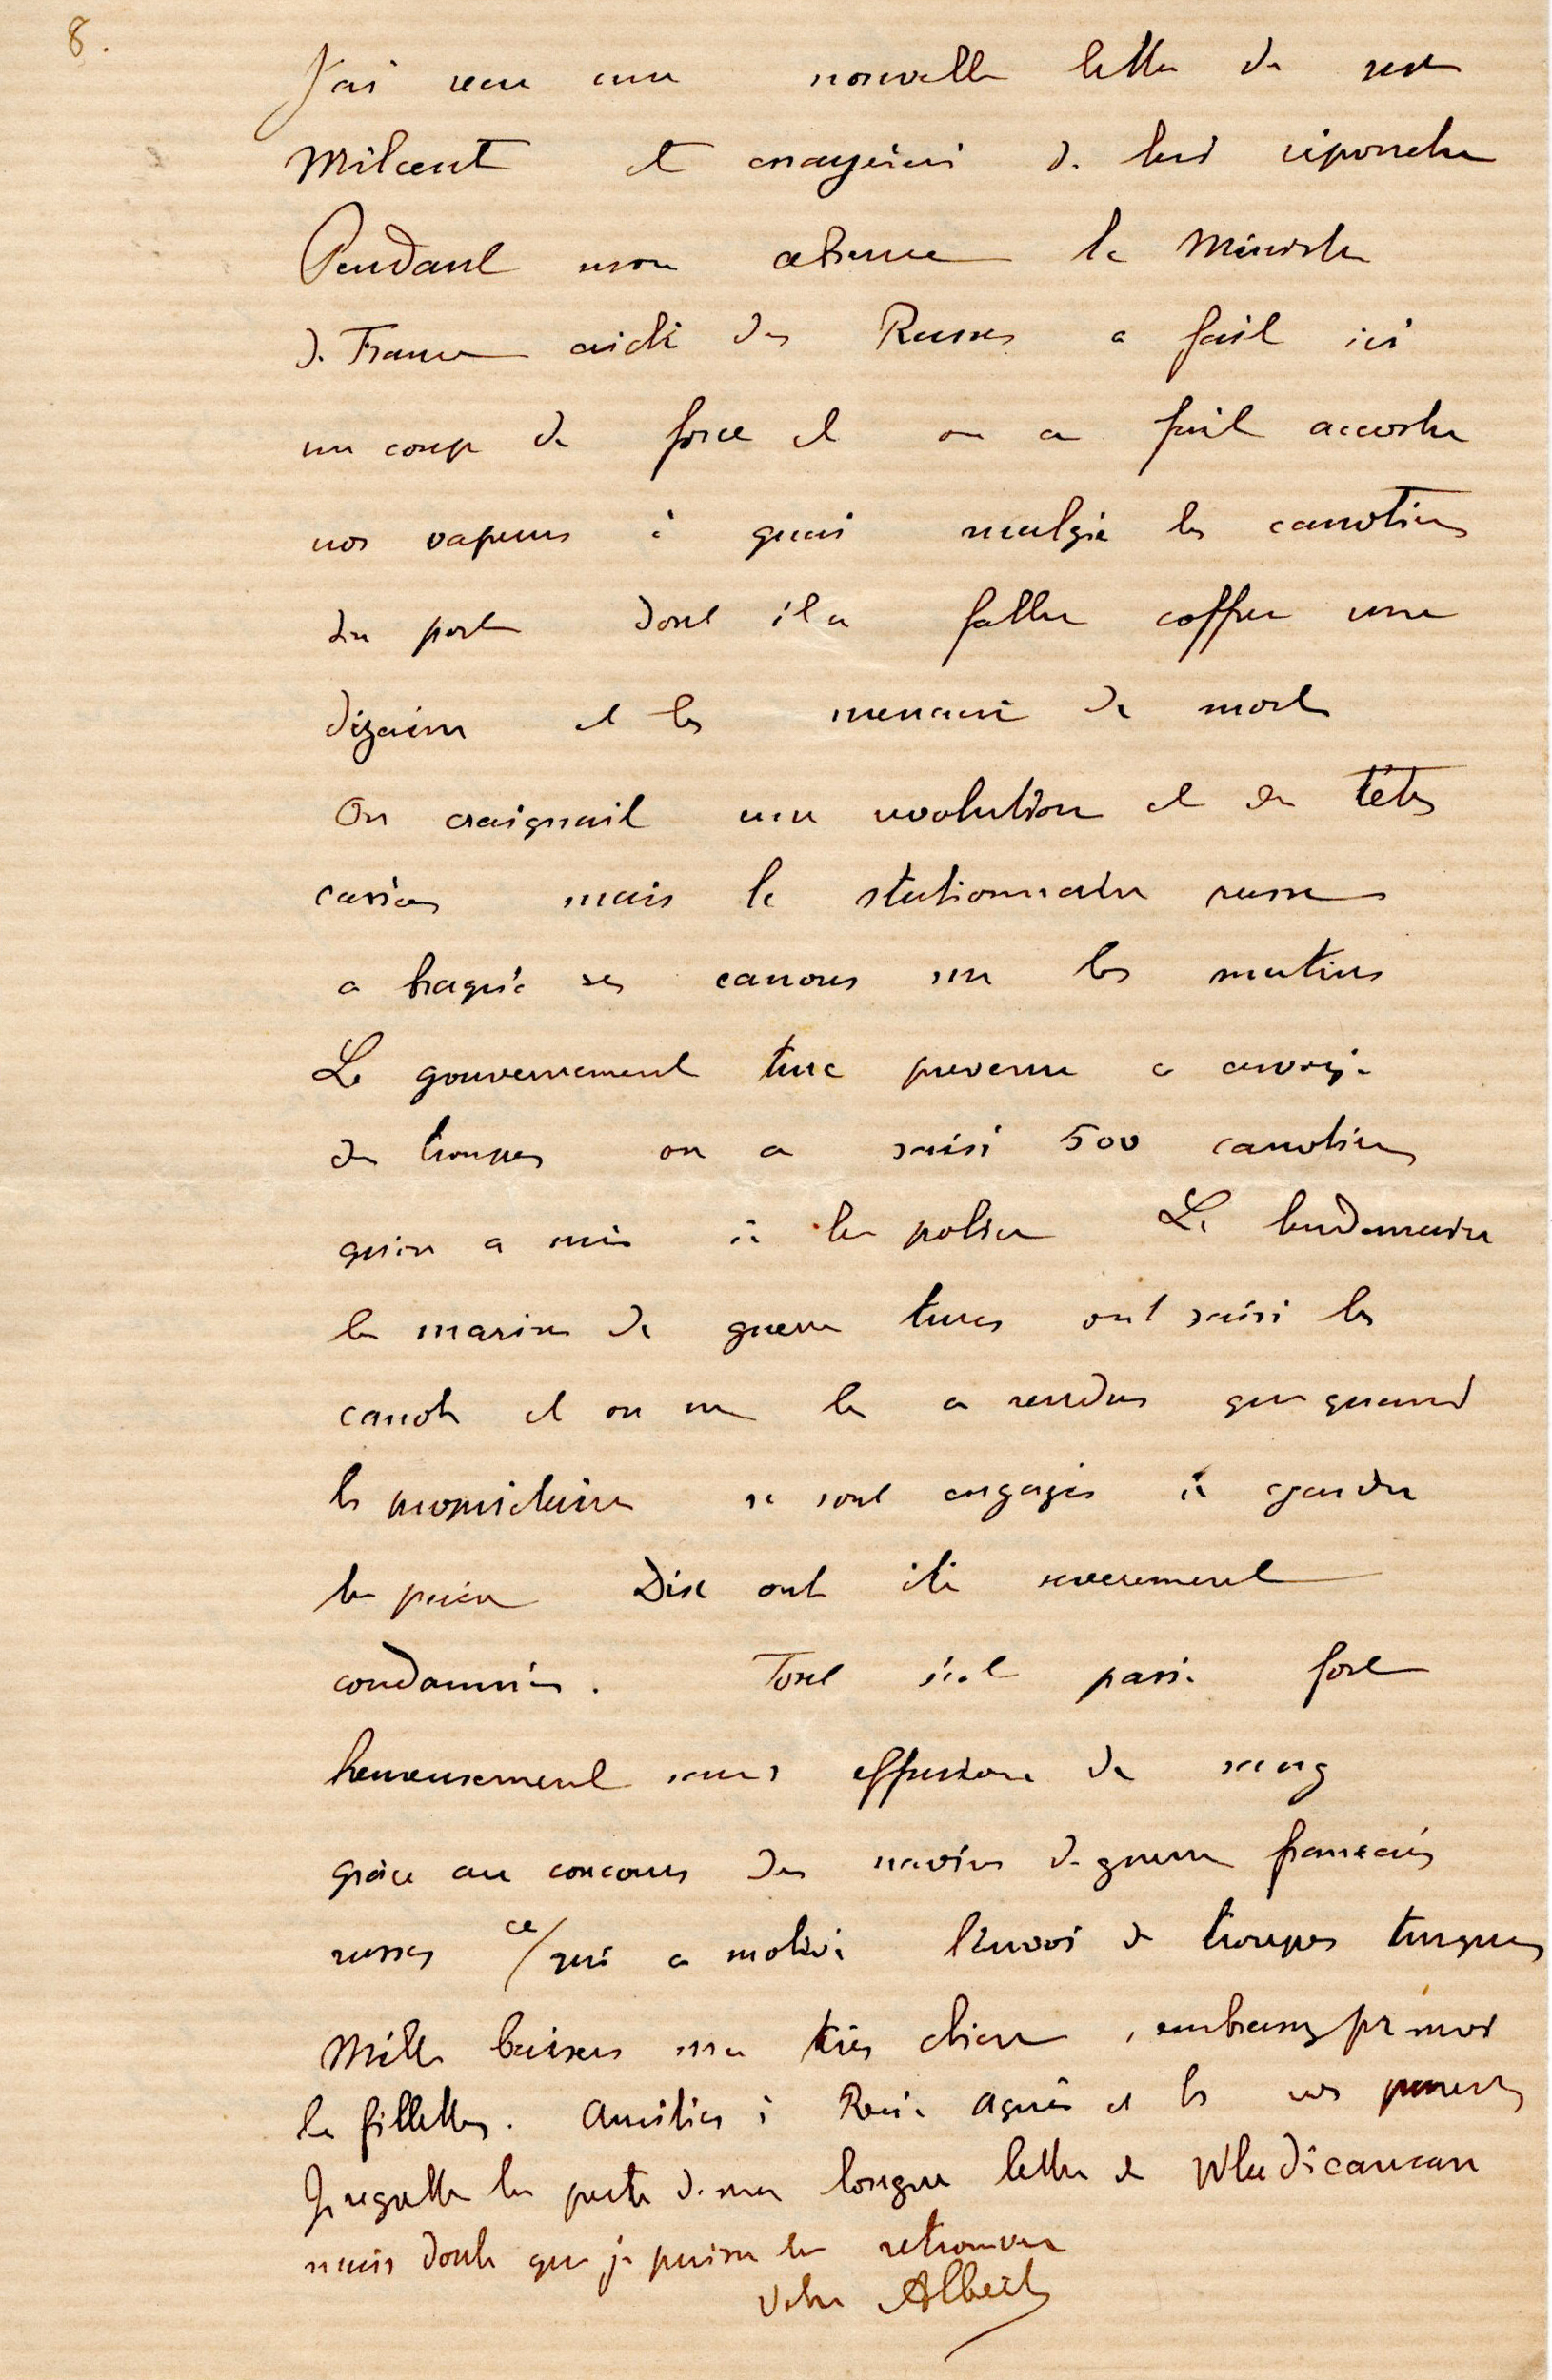 8.
J'ai reçu une nouvelle lettre de
Milcent et de lui répondre
Pendant mon absence le Ministre
de France aidé des Russes a fait ici
un coup de force et on a fait accoster
nos vapeurs à quai malgré les canotiers
du port dont il a fallu coffrer une
dizaine et les menacé de mort
On craignait une revolution et des têtes
cassées mais le stationnaire russe
a braqué ses canons sur les mutins
Le gouvernement turc prevenu a envoyé
des troupes on a saisi 500 canotiers
qu'on a mis à la police Le lendemain
les marins de guerre turcs ont saisi les
canots et on ne les a rendus que quand
les propriétaires se sont engagés à garder
la paix Dix ont été severement
condamnés. Tout s'est passé fort
heureusement sans effusion de sang
grâce au concours des navires de guerre français
russes ce/qui a motivé l'envoi de troupes turques
Mille baisers ma très chère, embrassez pr moi
les fillettes. Amitiés à René Agnès et à vos parents
Je regrette la perte de ma longue lettre de Wladicaucase
mais doute que je puisse la retrouver
Votre Albert